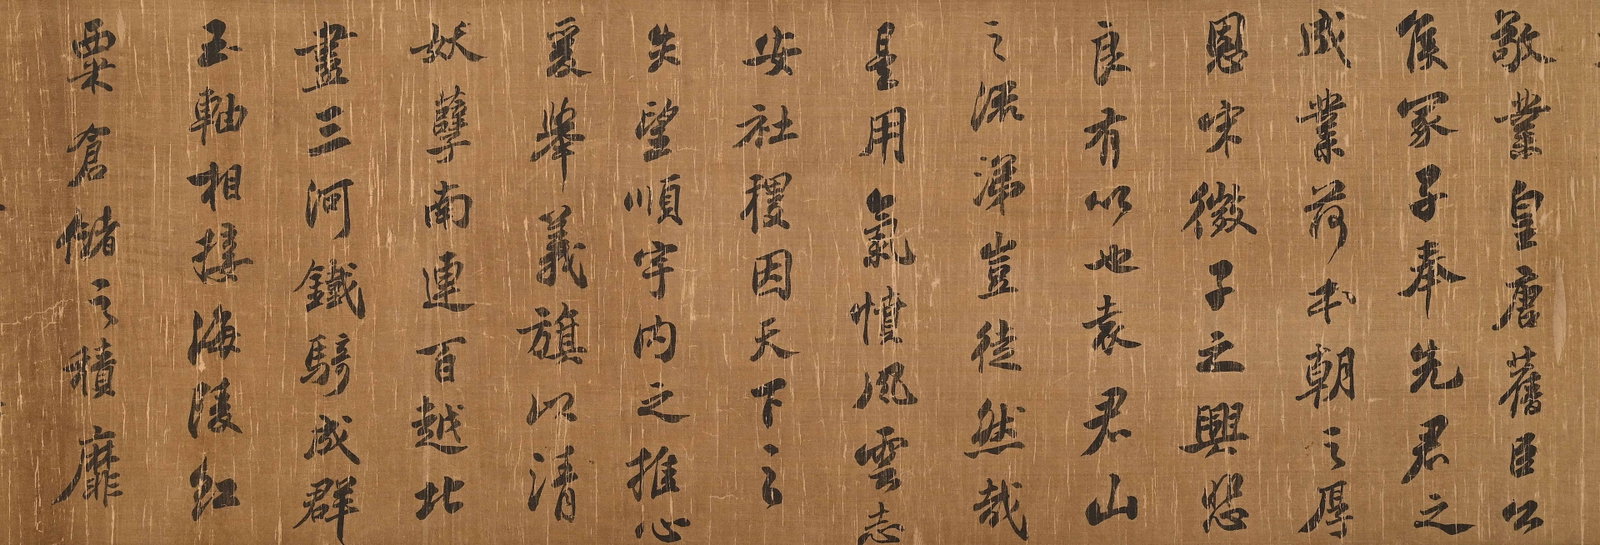 敬業皇唐舊臣公
侯冢子奉先君之
成業荷本朝之厚
恩宋微子之興悲
良有以也袁君山
之流涕豈徒然哉
是用氣憤風雲志
安社稷因天下之
失望順宇内之推心
爰舉義旗以清
妖孽南連百越北
盡三河鐵騎成群
玉軸相接海陵紅
粟倉儲之積靡